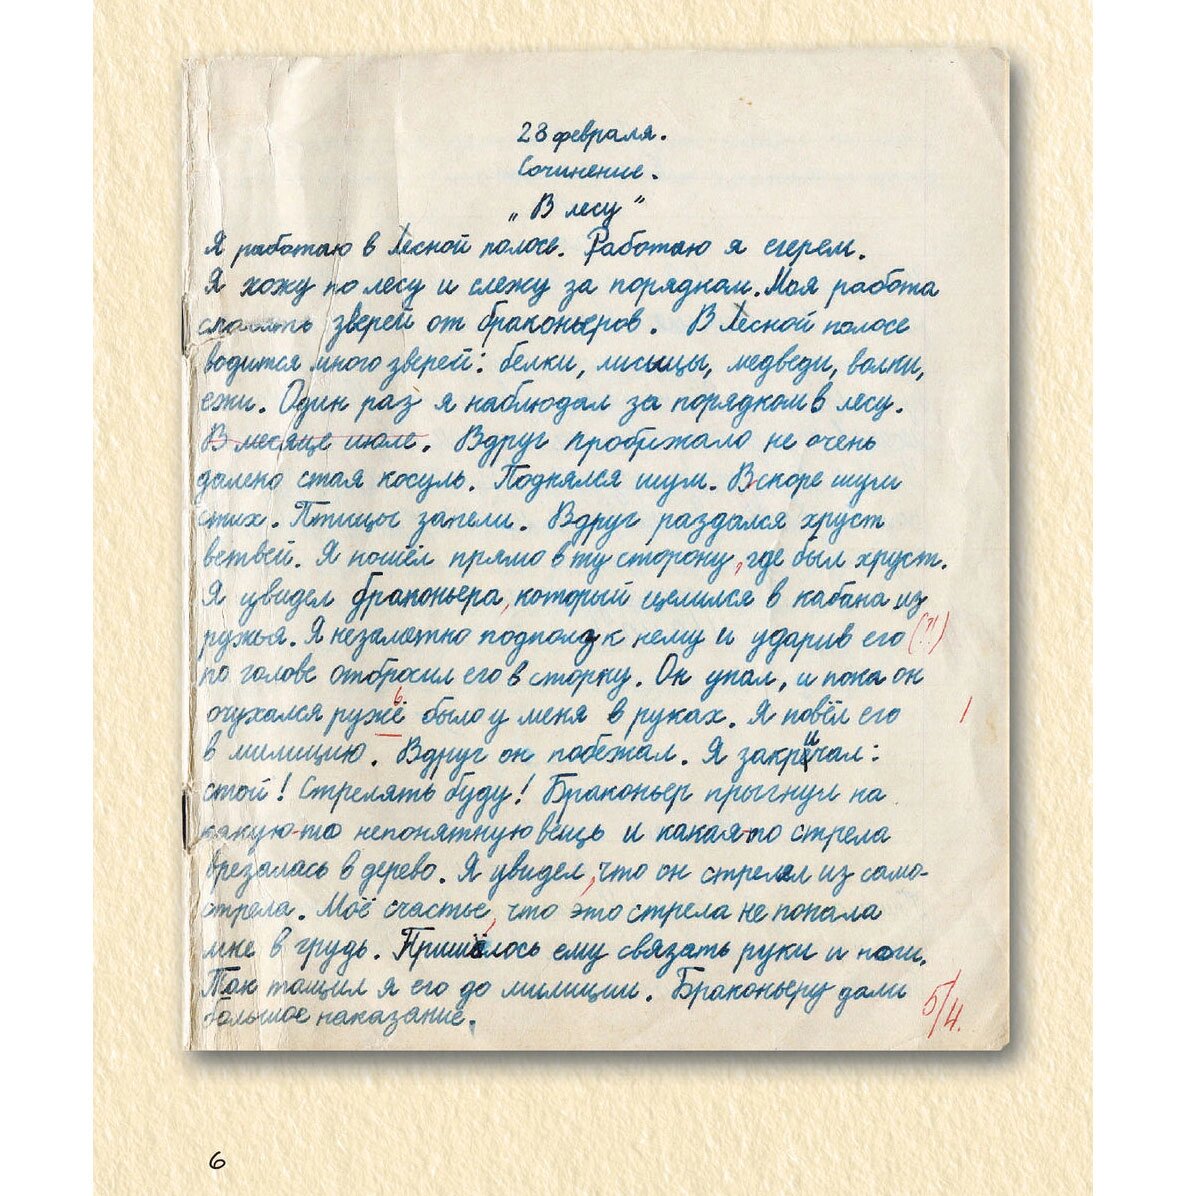 28 февраля.
Сочинение.
„В лесу"
Я работаю в лесной полосе. Работаю я егерем.
Я хожу по лесу и слежу за порядком. Моя работа
спасать зверей от браконьеров. В лесной полосе
водится много зверей: белки, лисыцы, медведи, волки,
ежи. Один раз я наблюдал за порядком в лесу.
В месяце июле. Вдруг пробижало не очень
далеко стая косуль. Поднялся шум. Вскоре шум
стих. Птицы запели. Вдруг раздался хруст
ветвей. Я пошёл прямо в ту сторону, где был хруст.
Я увидел браконьера, который целился в кабана из
ружья. Я незаметно подполз к нему и ударив его (?!)
по голове отбросил его в сторку. Он упал, и пока он
очухался ружьё было у меня в руках. Я повёл его
в милицию. Вдруг он побежал. Я закричал:
стой! Стрелять буду! Браконьер прыгнул на
какую-то непонятную вещь и какая-то стрела
врезалась в дерево. Я увидел, что он стрелял из само-
стрела. Моё счастье, что это стрела не попала
мне в грудь. Пришлось ему связать руки и ноги.
Так тащил я его до милиции. Браконьеру дали
большое наказание.
5/4.
6